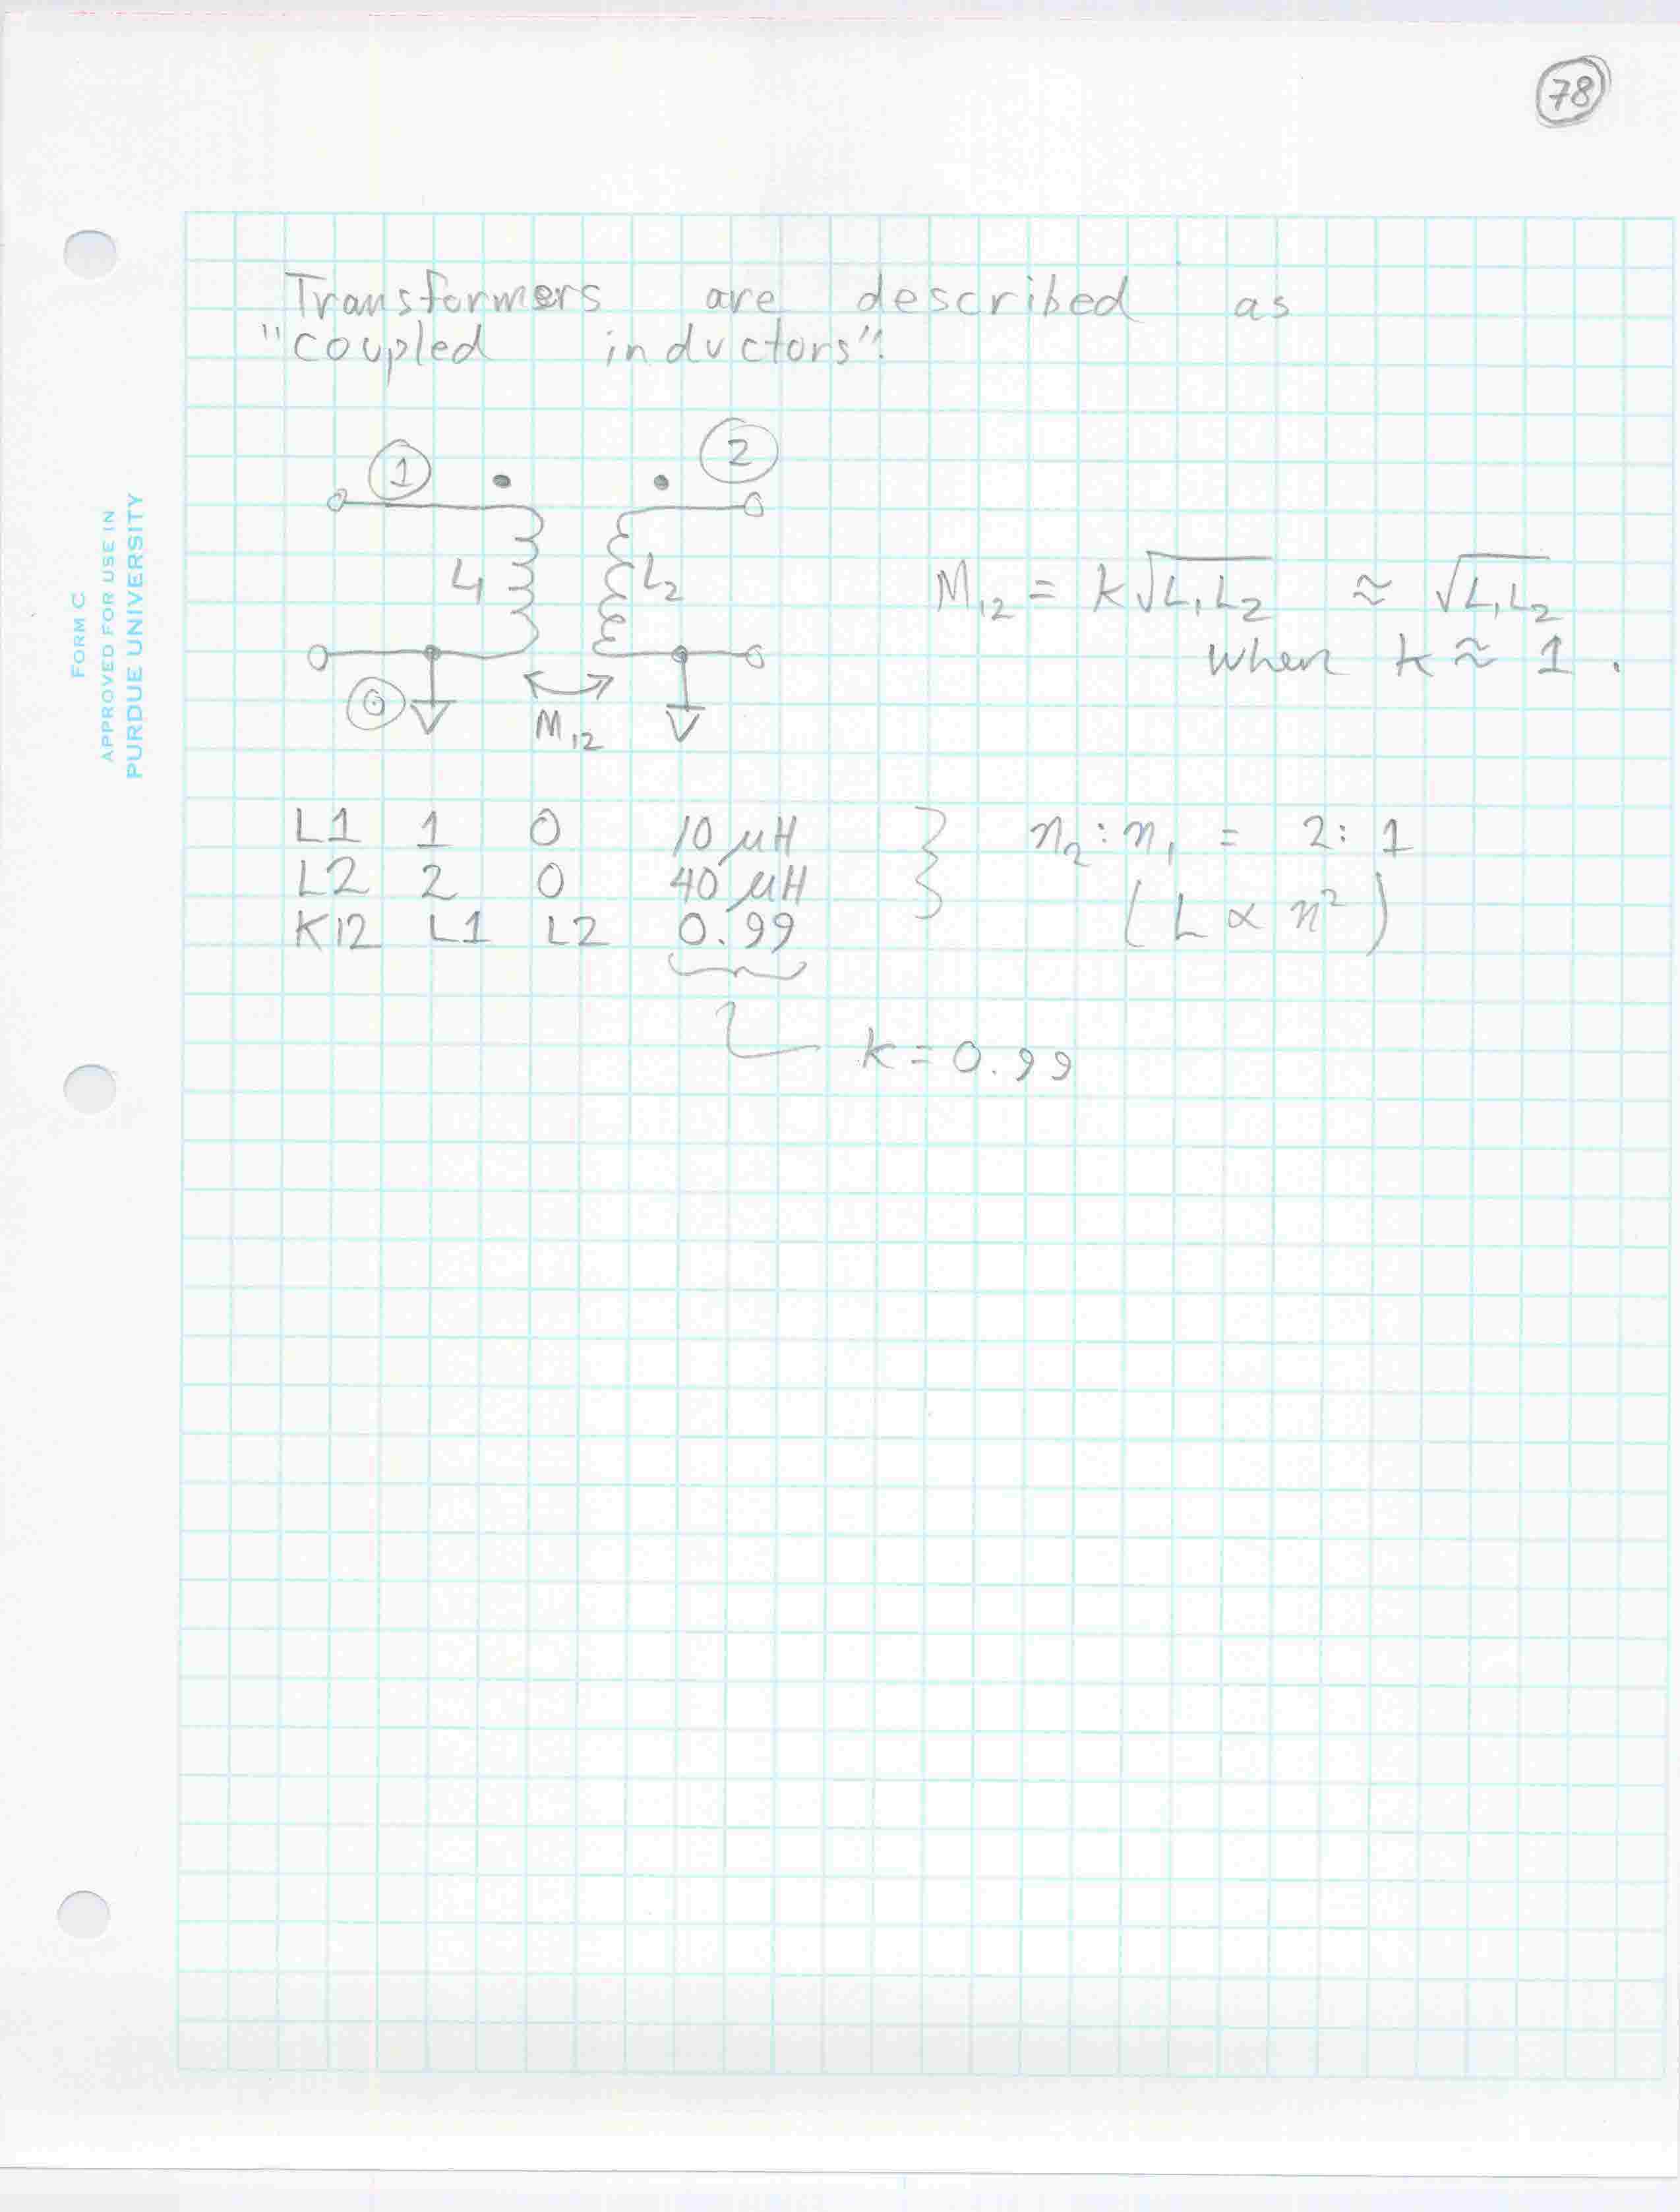 78
FORM C
APPROVED FOR USE IN
PURDUE UNIVERSITY
Transformers are described as
"coupled inductors".
1 2
L1 L2
M12 = k√L1L2 ≈ √L1L2
when k ≈ 1.
0
M12
L1 1 0 10 μH } n2 : n1 = 2 : 1
L2 2 0 40 μH
(L ∝ n²)
K12 L1 L2 0.99
k = 0.99